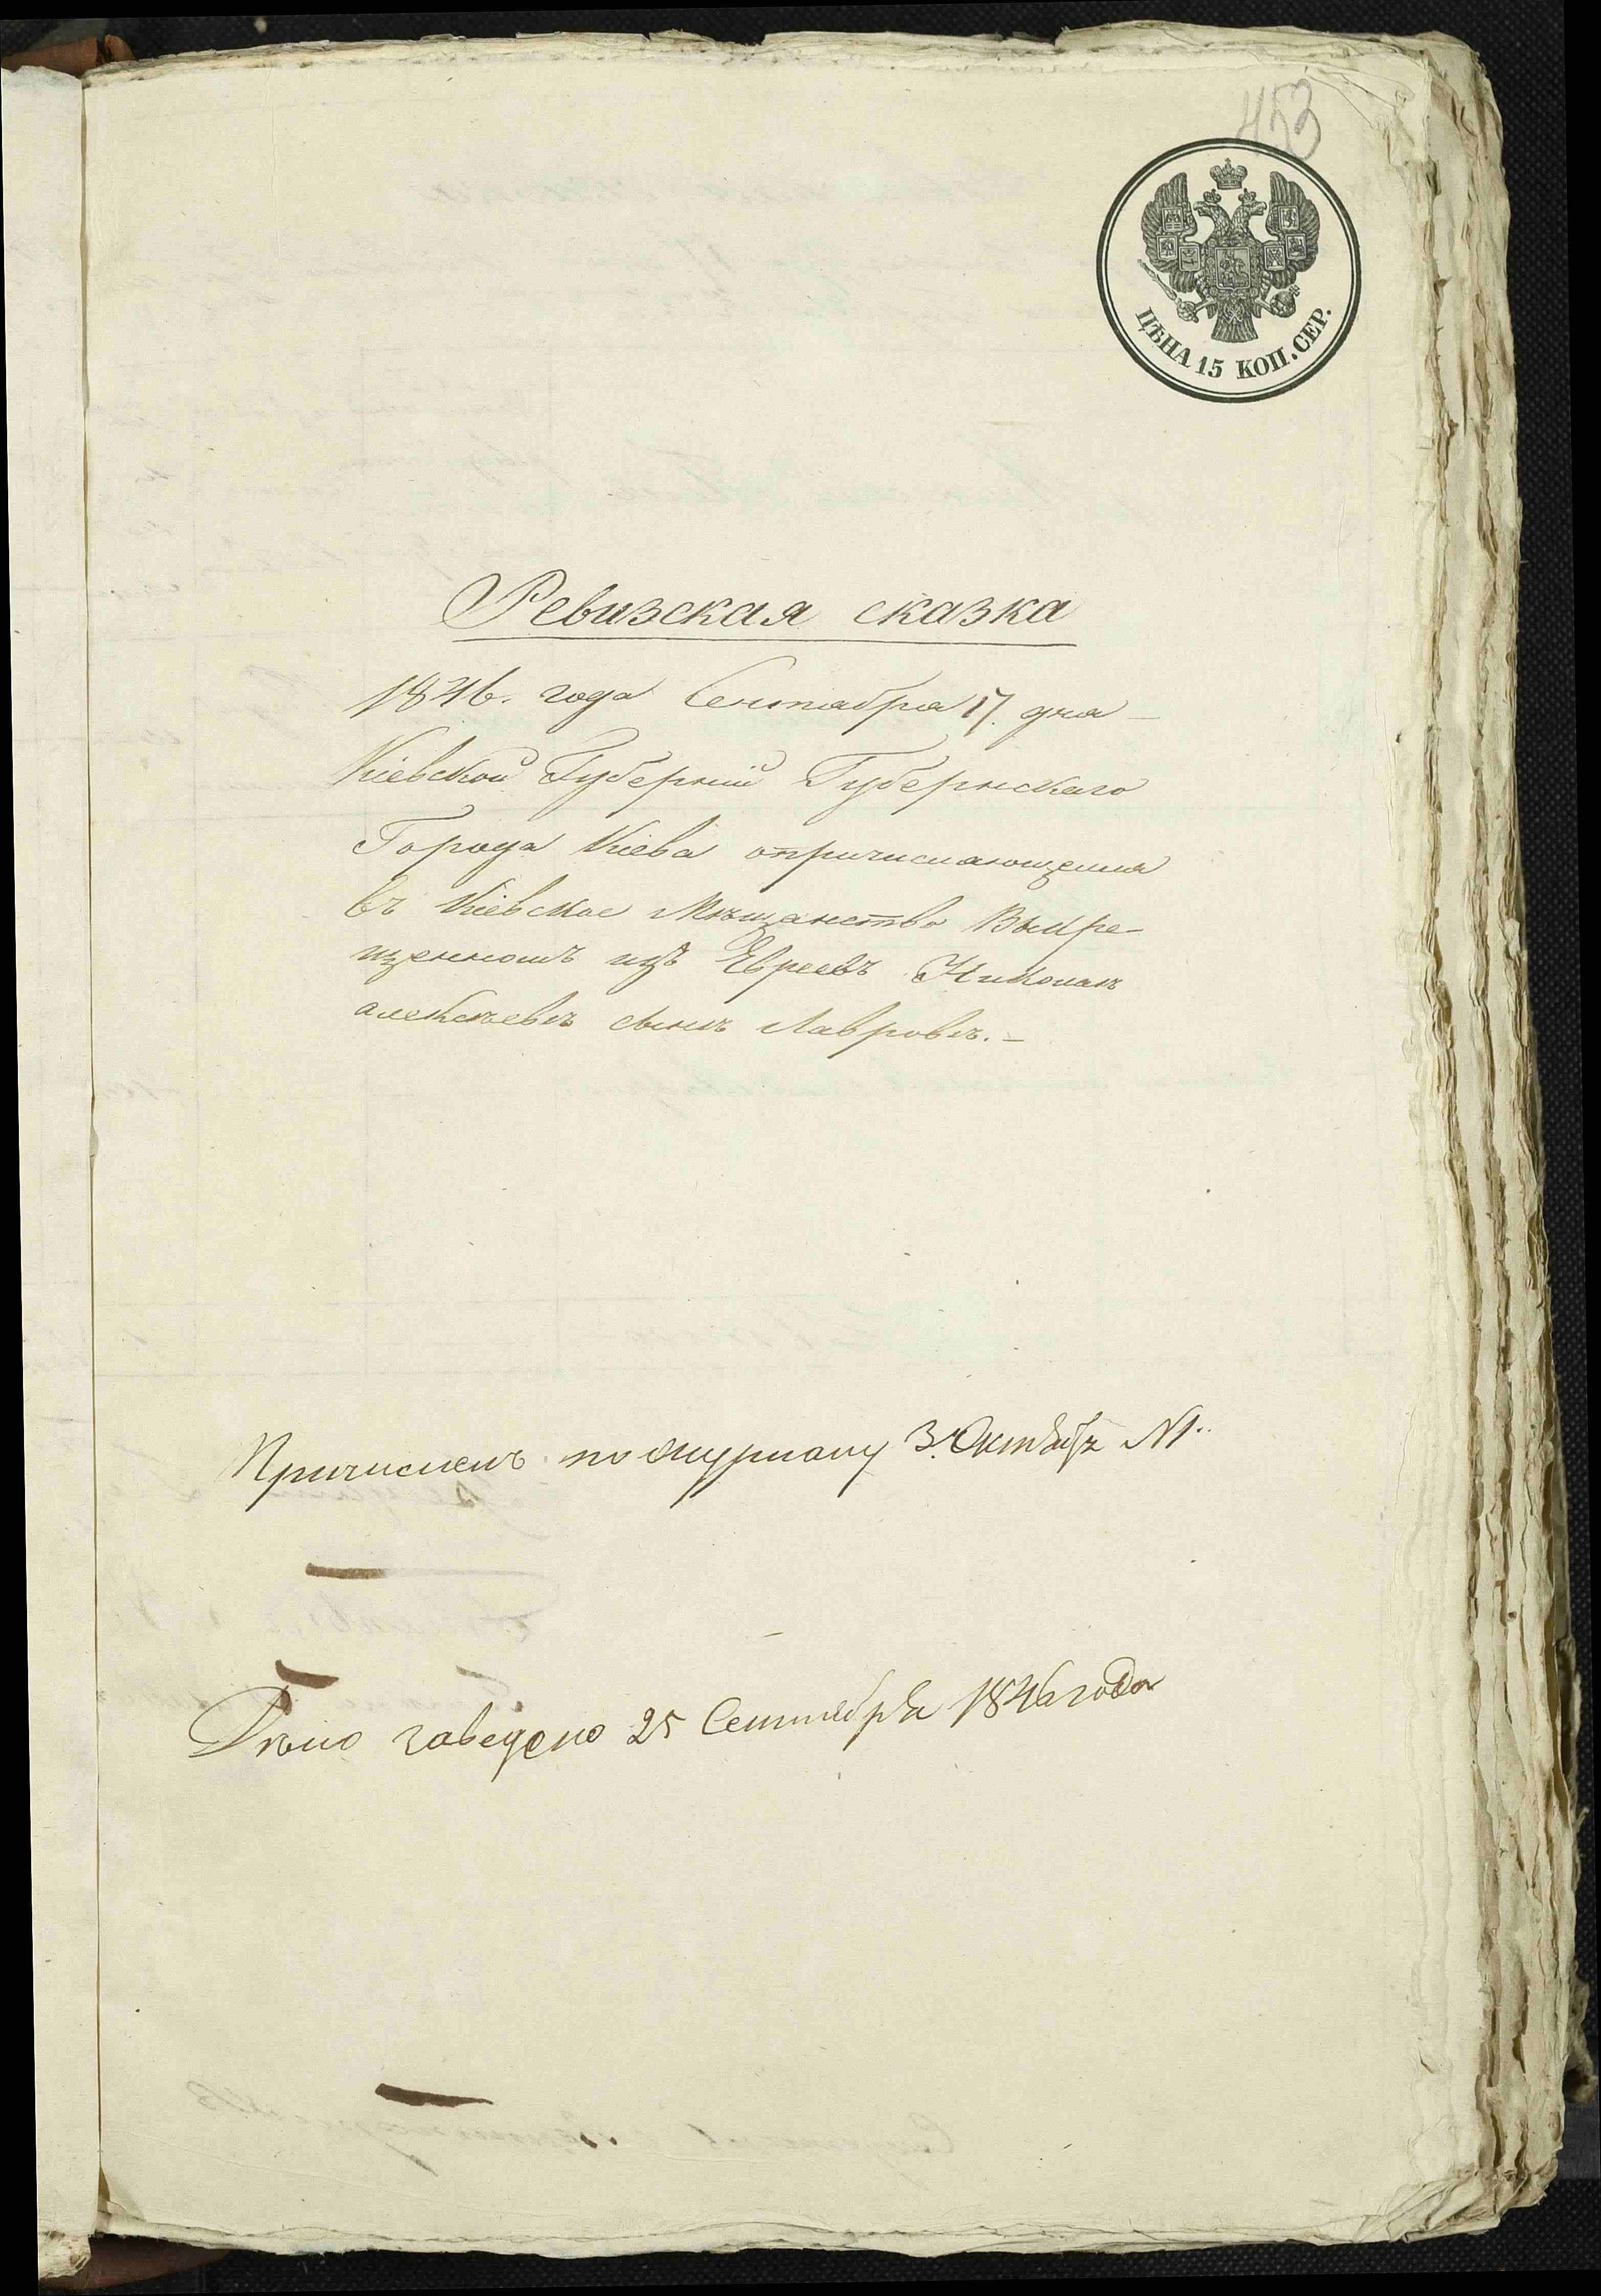 453
ЦѢНА 15 КОП. СЕР.
Ревизская сказка
1846. года Сентабра 17. дна
Кіевской Губерніи Губернскаго
Города Кіева опричисляющемся
въ Кіевское Мѣщанство Выкре-
щенномъ изъ Евреевъ Николаѣ
алексѣевѣ сынѣ Лавровѣ.
Причисленъ по журналу 3. Октября №1
Дѣло заведено 25 Сентября 1846 года